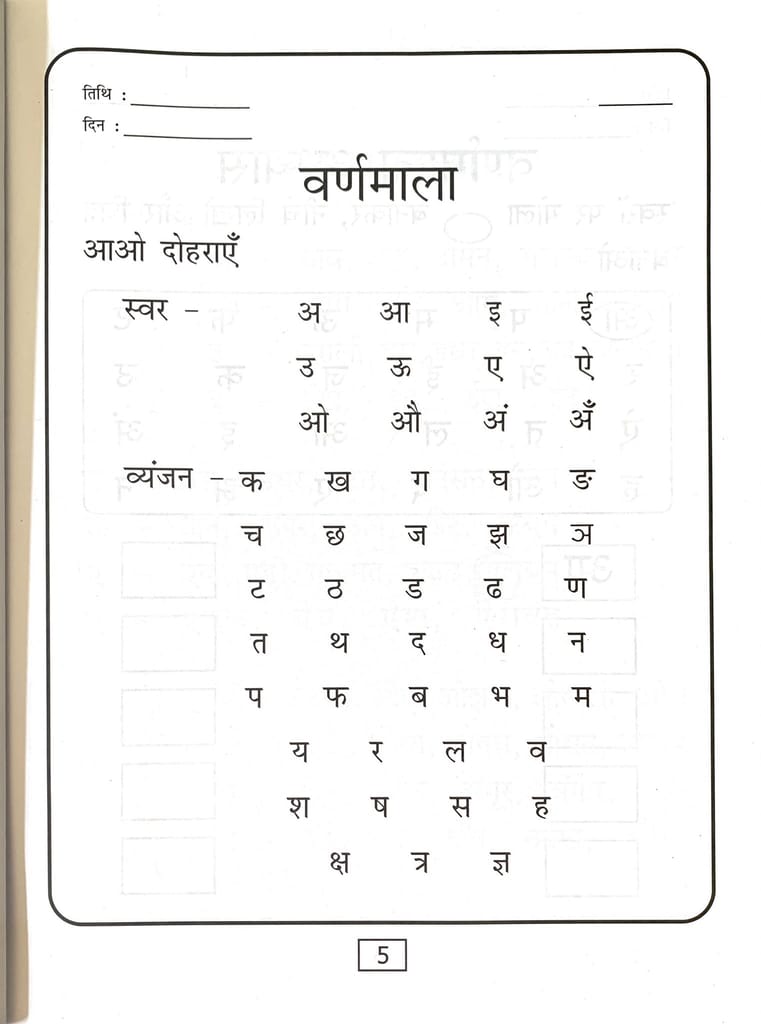 तिथि : ____________ ________
दिन : ____________
वर्णमाला
आओ दोहराएँ
स्वर – अ आ इ ई
उ ऊ ए ऐ
ओ औ अं अँ
व्यंजन – क ख ग घ ङ
च छ ज झ ञ
ट ठ ड ढ ण
त थ द ध न
प फ ब भ म
य र ल व
श ष स ह
क्ष त्र ज्ञ
5